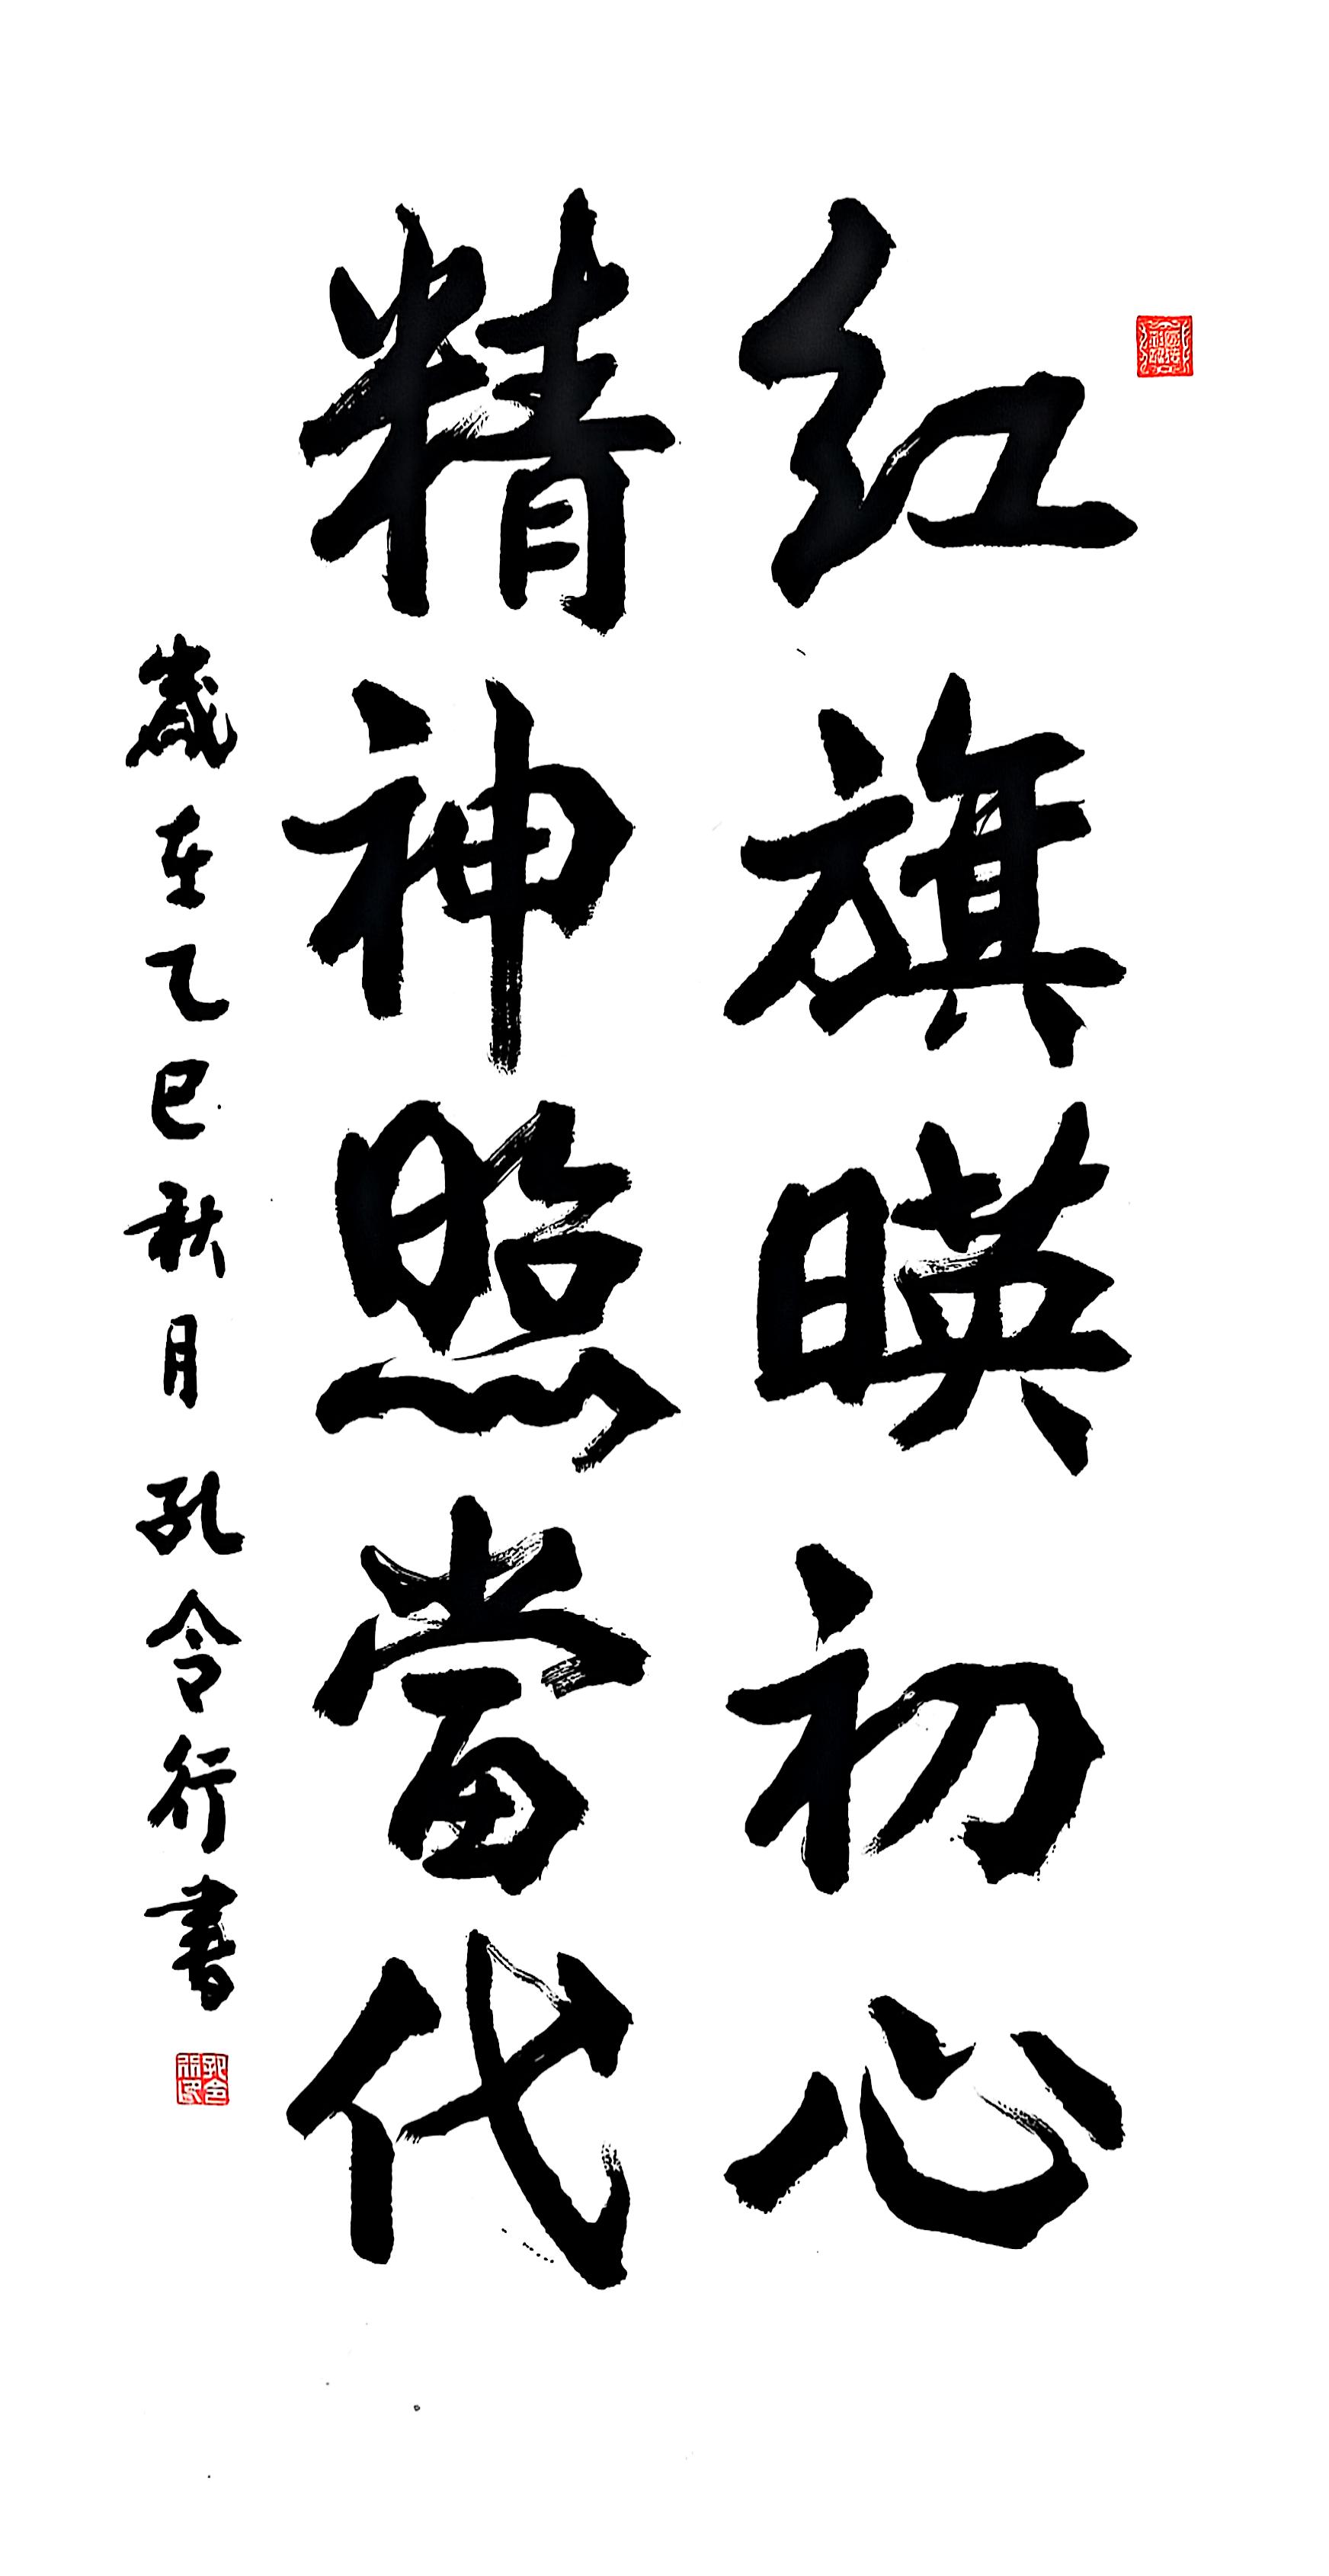 红旗暎初心
精神照當代
歲在乙巳秋月孔令行書